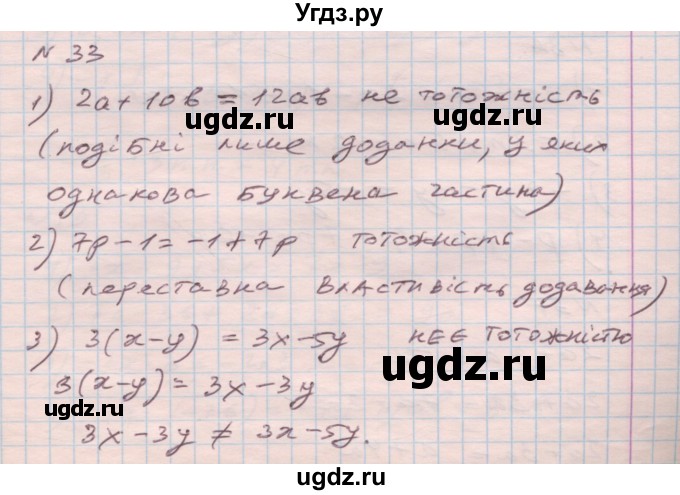 Угдз.ру
№ 33
1) 2a + 10b = 12ab не тотожність
(подібні лише доданки, у яких
однакова буквена частина)
2) 7p - 1 = -1 + 7p тотожність
(переставна властивість додавання)
3) 3(x-y) = 3x - 5y не є тотожністю
3(x-y) = 3x - 3y
3x - 3y ≠ 3x - 5y.
ugdz.ru
ugdz.ru
ugdz.ru
ugdz.ru
ugdz.ru
ugdz.ru